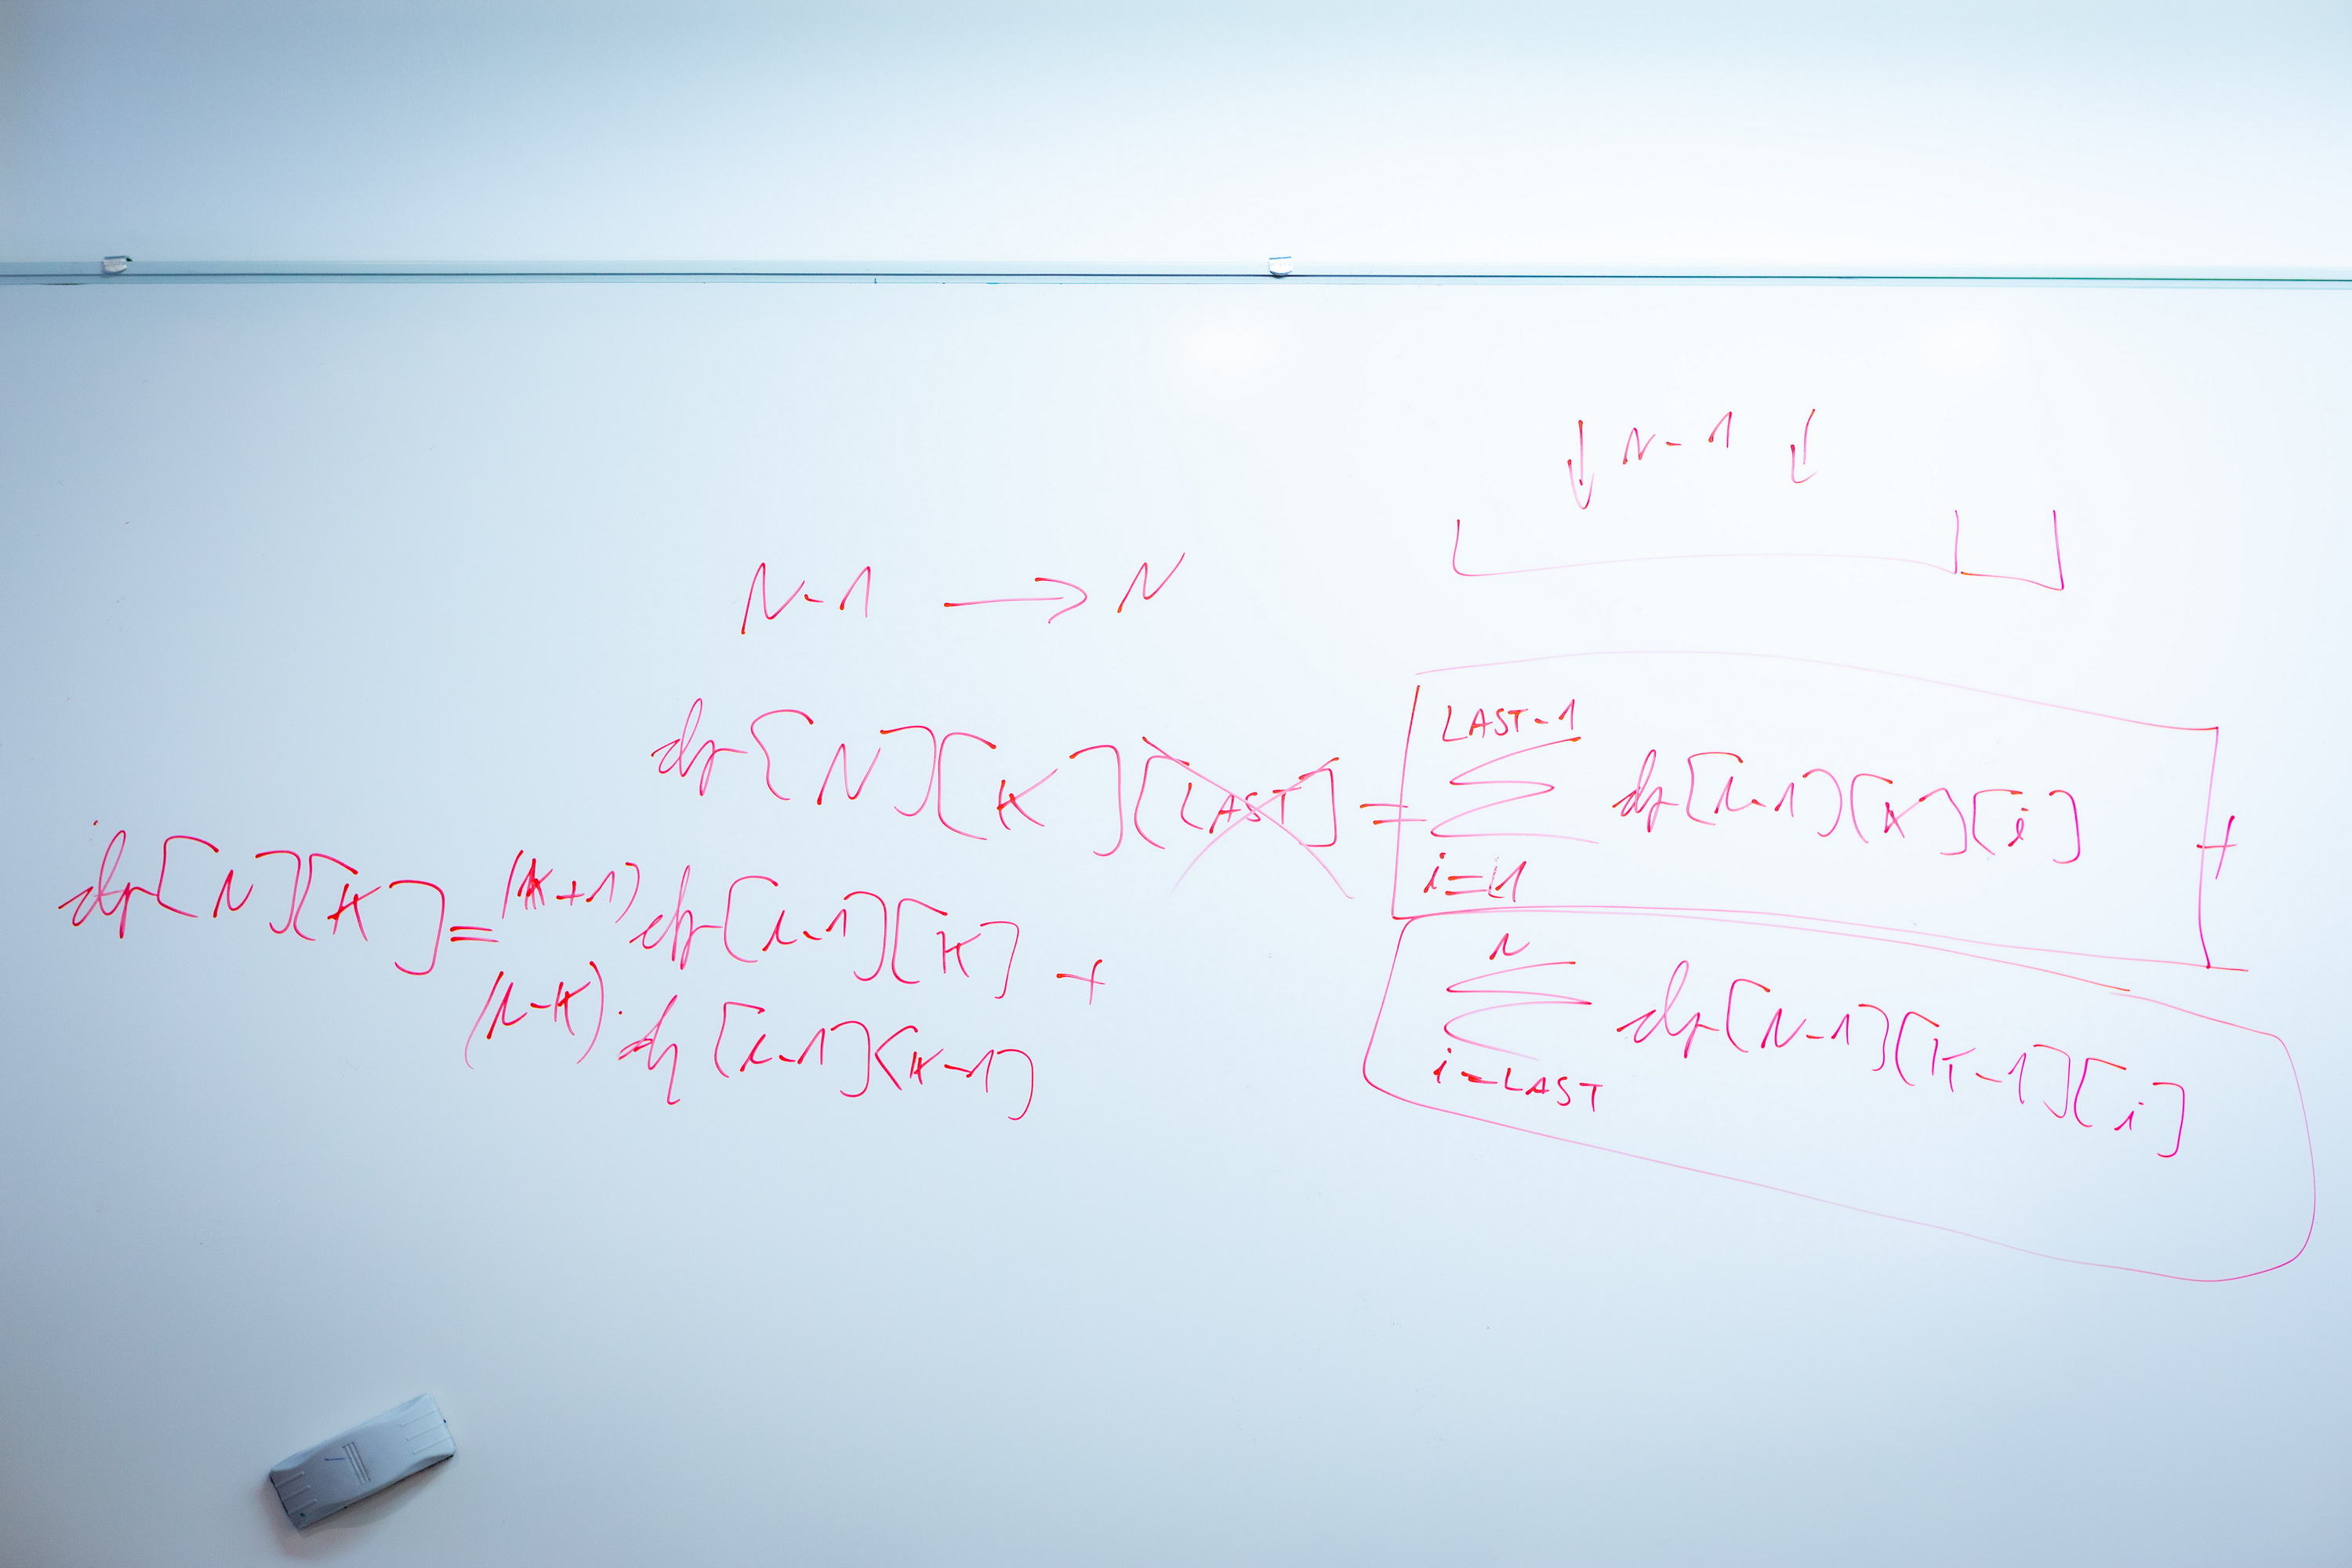 ↓ N-1 ↓
N-1 → N
dp[N][K][LAST] =
LAST-1
∑ dp[N-1][K][i] +
i=1
N
∑ dp[N-1][K-1][i]
i=LAST
dp[N][K] = (K+1) dp[N-1][K] +
(N-K)· dp[N-1][K-1]